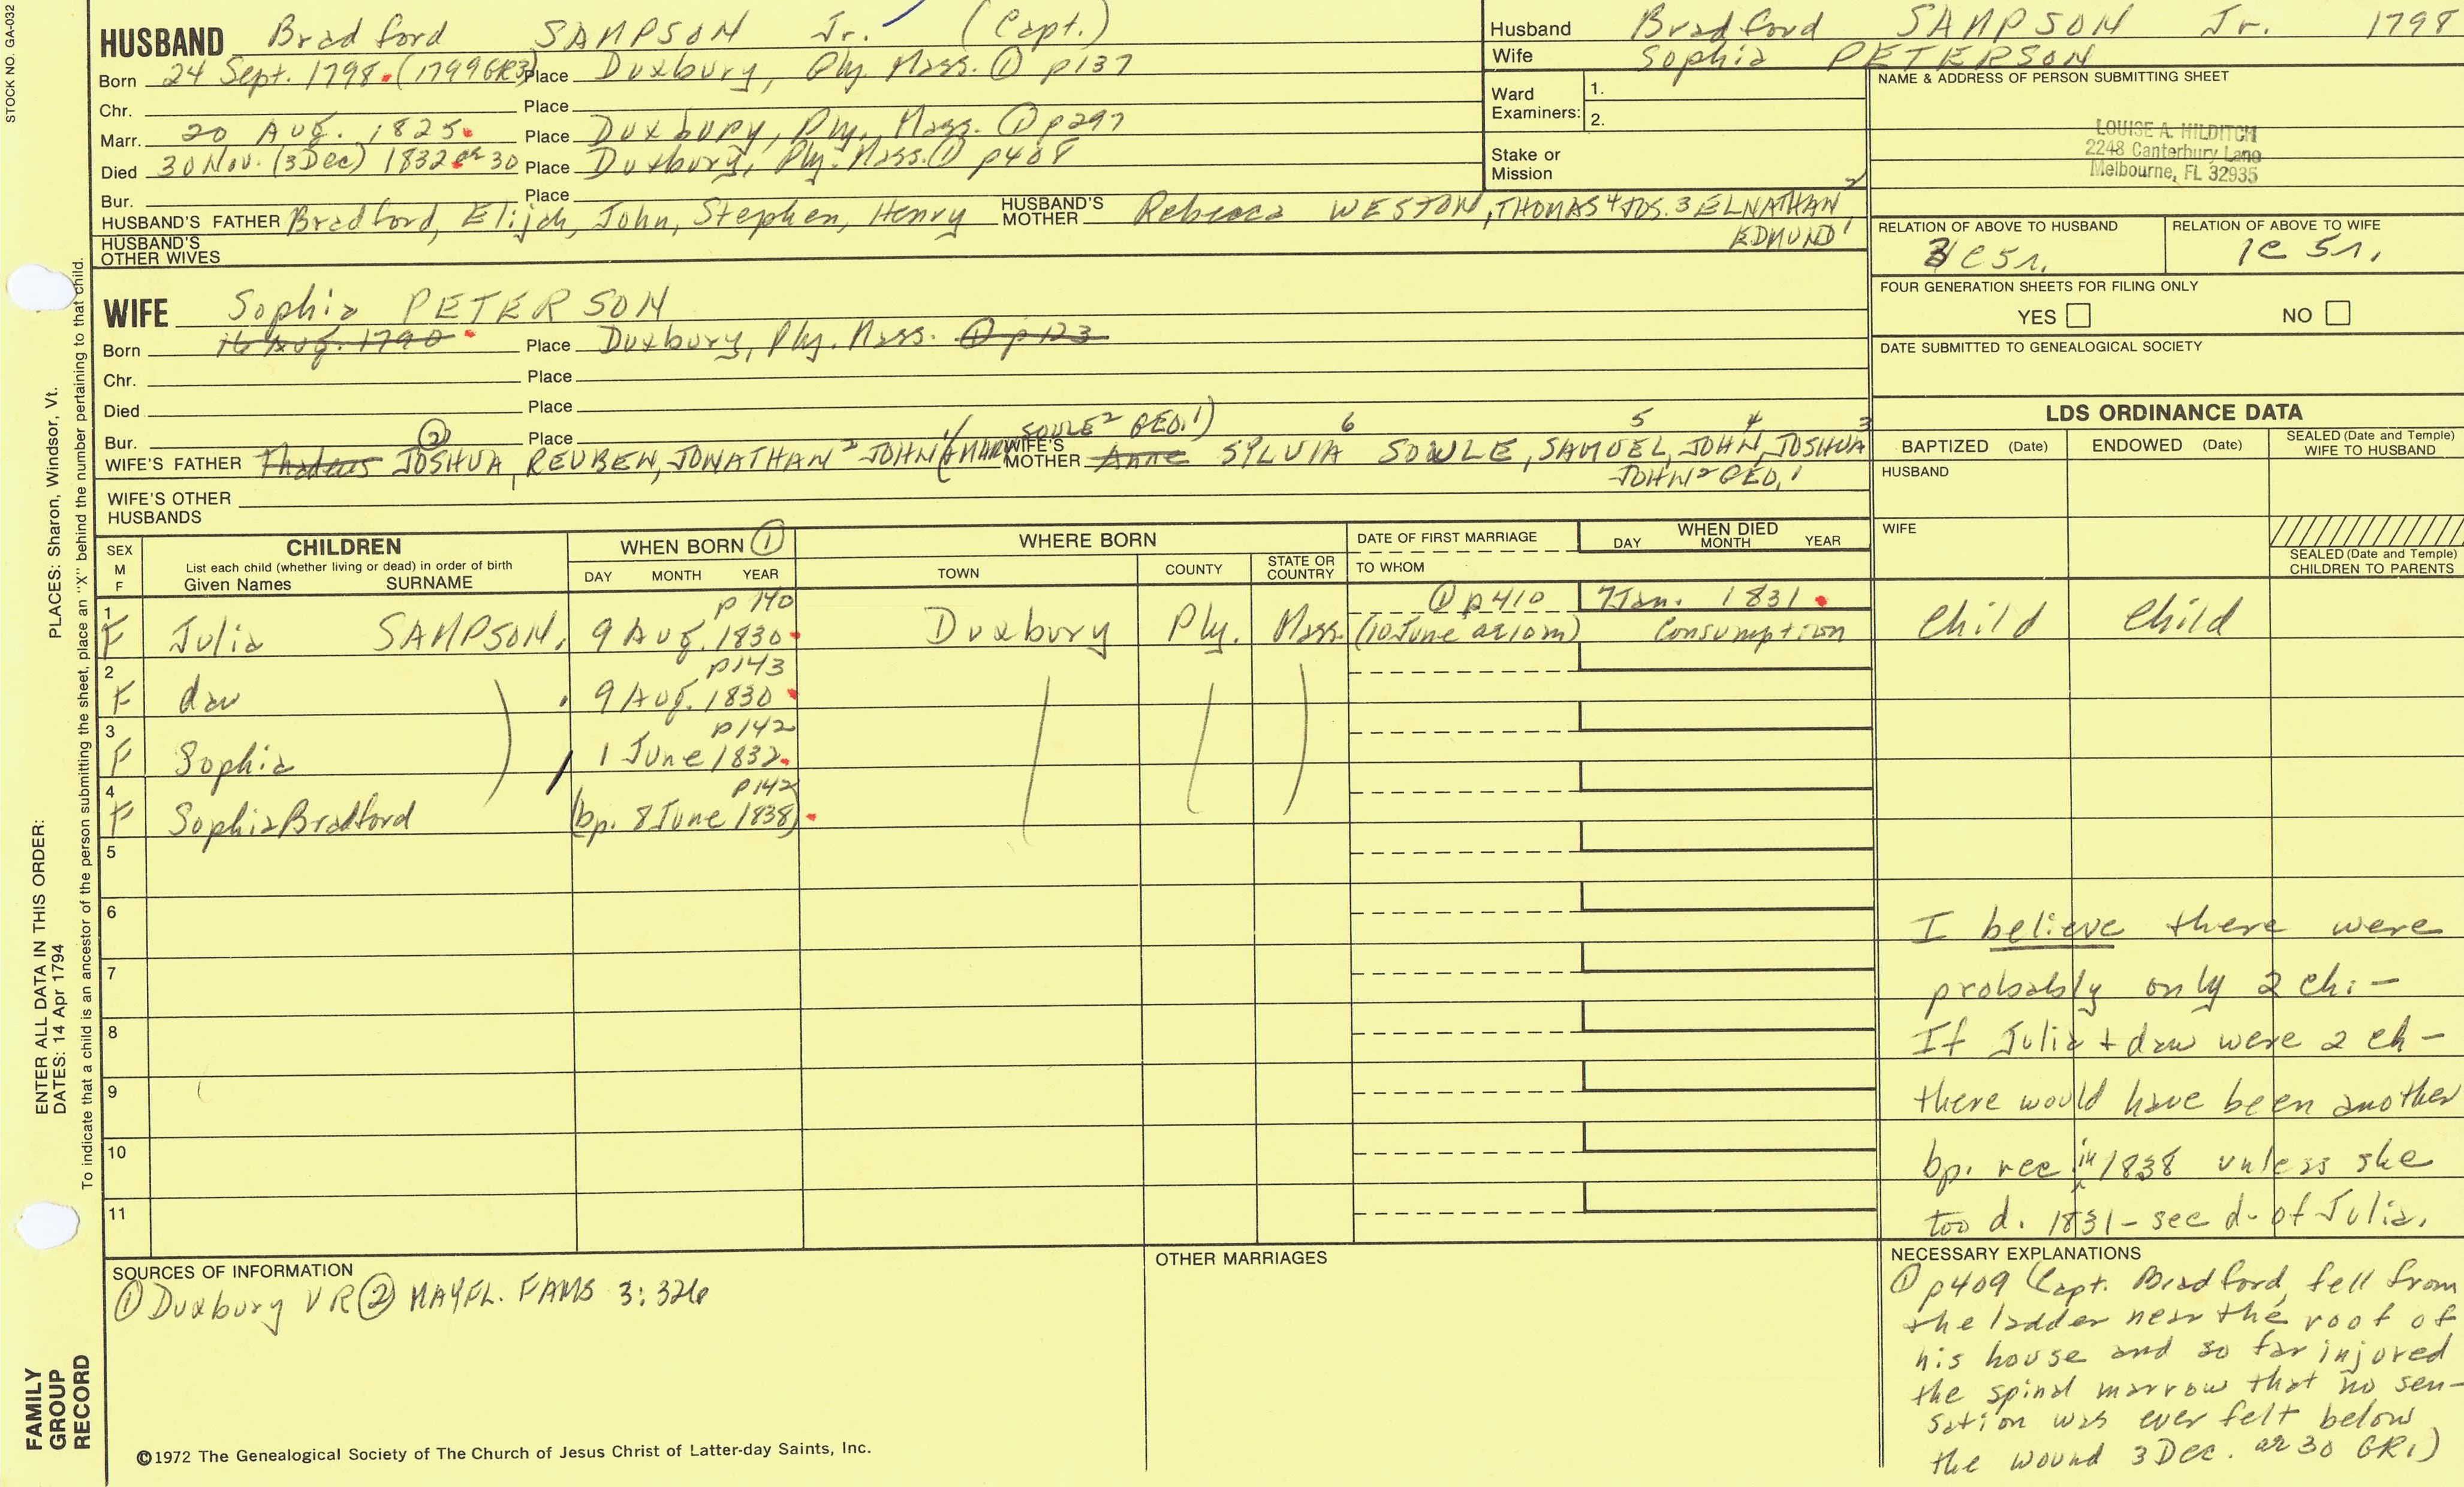 STOCK NO. GA-032
HUSBAND Bradford SAMPSON Jr. (Capt.)
Born 24 Sept. 1798. (1799 GR3) Place Duxbury, Ply Mass. ① p137
Chr. Place
Marr. 20 Aug. 1825. Place Duxbury, Ply., Mass. ① p297
Died 30 Nov. (3 Dec) 1832 ae 30 Place Duxbury, Ply. Mass. ① p408
Bur. Place
HUSBAND'S FATHER Bradford, Elijah, John, Stephen, Henry HUSBAND'S MOTHER Rebecca WESTON, THOMAS 4 JOS. 3 ELNATHAN 2
EDMUND 1
HUSBAND'S OTHER WIVES
Husband Bradford SAMPSON Jr. 1798
Wife Sophia PETERSON
Ward Examiners: 1.
2.
Stake or Mission
NAME & ADDRESS OF PERSON SUBMITTING SHEET
LOUISE A. HILDITCH
2248 Canterbury Lane
Melbourne, FL 32935
RELATION OF ABOVE TO HUSBAND RELATION OF ABOVE TO WIFE
3C5r. 1C 5r.
FOUR GENERATION SHEETS FOR FILING ONLY
YES NO
DATE SUBMITTED TO GENEALOGICAL SOCIETY
WIFE Sophia PETERSON
Born 16 Aug. 1790 Place Duxbury, Ply. Mass. ① p123
Chr. Place
Died Place
Bur. Place
SOULE 2 GEO. 1) 6 5 4 3
WIFE'S FATHER Thadeus ② JOSHUA, REUBEN, JONATHAN 2 JOHN 1 (MARY WIFE'S MOTHER Anne SYLVIA SOULE, SAMUEL, JOHN, JOSHUA
JOHN 2 GEO. 1
WIFE'S OTHER HUSBANDS
LDS ORDINANCE DATA
BAPTIZED (Date) ENDOWED (Date) SEALED (Date and Temple) WIFE TO HUSBAND
HUSBAND
WIFE
SEALED (Date and Temple) CHILDREN TO PARENTS
SEX M F CHILDREN WHEN BORN ① WHERE BORN DATE OF FIRST MARRIAGE WHEN DIED
List each child (whether living or dead) in order of birth
Given Names SURNAME DAY MONTH YEAR TOWN COUNTY STATE OR COUNTRY TO WHOM DAY MONTH YEAR
p140 ① p410 7 Jan. 1831.
1 F Julia SAMPSON, 9 Aug. 1830. Duxbury Ply. Mass. (10 June ae 10m) Consumption Child Child
p143
2 F dau 9 Aug. 1830
p142
3 F Sophia 1 June 1832.
p142
4 F Sophia Bradford (bp. 8 June 1838).
5
6
7
8
9
10
11
I believe there were
probably only 2 ch. -
If Julia + dau were 2 ch -
there would have been another
bp. rec in 1838 unless she
too d. 1831 - see d. of Julia.
SOURCES OF INFORMATION
① Duxbury VR ② MAYFL. FAMS 3:326
OTHER MARRIAGES
NECESSARY EXPLANATIONS
① p409 (Capt. Bradford, fell from
the ladder near the roof of
his house and so far injured
the spinal marrow that no sen-
sation was ever felt below
the wound 3 Dec. ae 30 GR1)
©1972 The Genealogical Society of The Church of Jesus Christ of Latter-day Saints, Inc.
FAMILY GROUP RECORD
ENTER ALL DATA IN THIS ORDER:
DATES: 14 Apr 1794
PLACES: Sharon, Windsor, Vt.
To indicate that a child is an ancestor of the person submitting the sheet, place an "X" behind the number pertaining to that child.